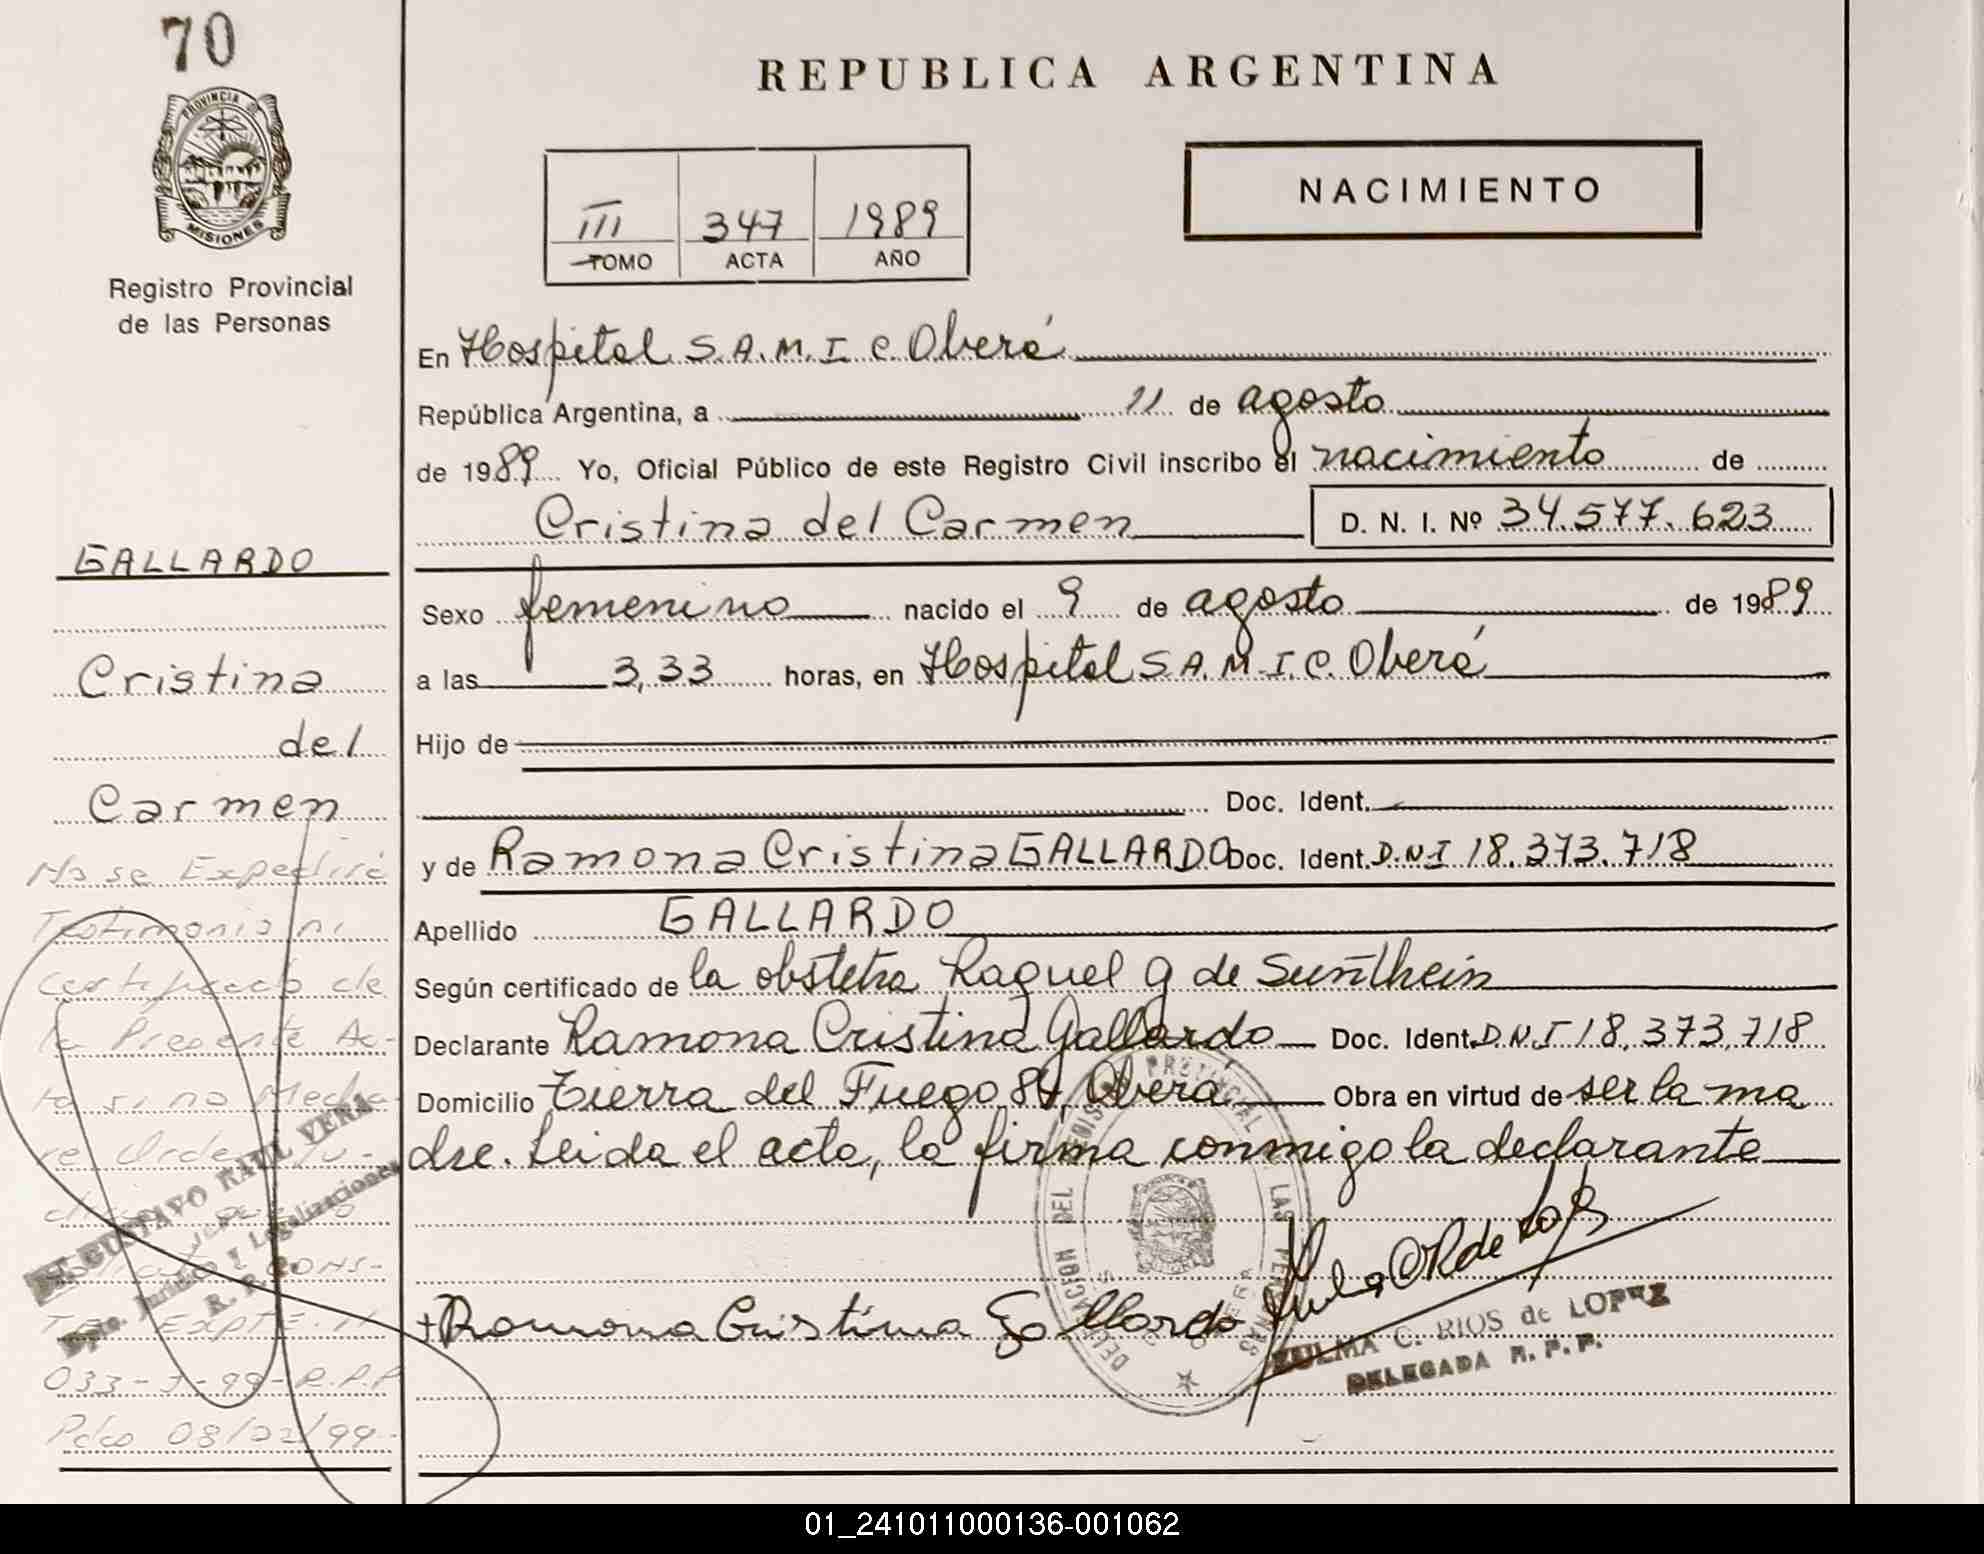 70
PROVINCIA DE
MISIONES
Registro Provincial
de las Personas
REPUBLICA ARGENTINA
III 347 1989
TOMO ACTA AÑO
NACIMIENTO
En Hospital S.A.M.I.C. Oberá
República Argentina, a 11 de agosto
de 1989 Yo, Oficial Público de este Registro Civil inscribo el nacimiento de
Cristina del Carmen D. N. I. Nº 34.577.623
Sexo femenino nacido el 9 de agosto de 1989
a las 3,33 horas, en Hospital S.A.M.I.C. Oberá
Hijo de
Doc. Ident.
y de Ramona Cristina GALLARDO Doc. Ident. D.N.I 18.373.718
Apellido GALLARDO
Según certificado de la obstetra Raquel G de
Declarante Ramona Cristina Gallardo Doc. Ident. D.N.I 18.373.718
Domicilio Tierra del Fuego 87, Oberá Obra en virtud de ser la ma
dre. Leida el acta, la firma conmigo la declarante
Ramona Cristina Gallardo
ZULMA C. RIOS de LOPEZ
DELEGADA R. P. P.
GALLARDO
Cristina
del
Carmen
No se Expedirá
Testimonio ni
Certificado de
la Presente Ac-
ta si no Media-
re Orden Ju-
EXPTE.
033-J-99-R.P.P
Pdas 08/02/99-
GUSTAVO RAUL VERA
Dpto. Jurídico y Legalizaciones
R. P. P.
DELEGACION DEL REGISTRO PROVINCIAL DE LAS PERSONAS
01_241011000136-001062